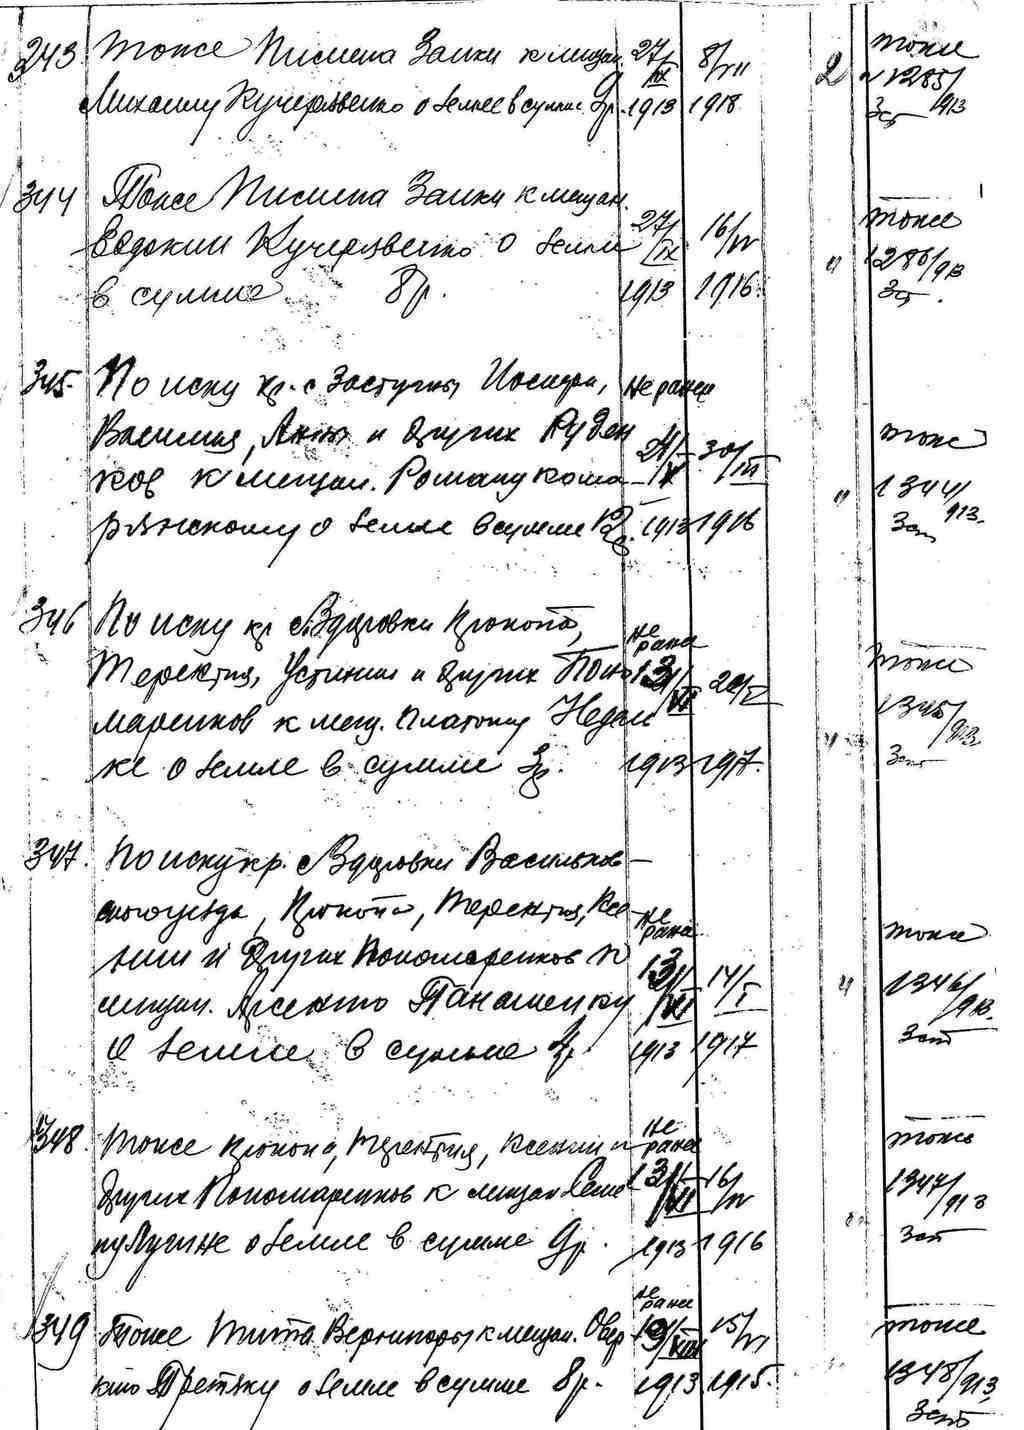 343 Тоже Пимена Заики к мещан. 27/IX 8/VII 2 тоже
Михаилу Кучерявенко о земле в сумме 9р. 1913 1918 1285/913
344 Тоже Пимена Заики к мещан.
Евдокии Кучерявенко о земле 27/IX 16/IV " тоже
в сумме 8р. 1913 1916. 1286/913
345. По иску кр. с. Застугны Иосифа, не ранее
Василия, Анны и других Руден
ков к мещан. Роману Кома- 30/III " тоже
рянскому о земле в сумме 1913 1916 1344/913.
346 По иску кр. с. Здоровки Прокопа, не ранее
Терентия, Устинии и других Поно 13/VI тоже
маренков к мещ. Платону Недаш 1345/913
ке о земле в сумме 3р. 1913 1917.
347. По иску кр. с. Здоровки Васильков-
ского уезда, Прокопа, Терентия, Ксе- не ранее
нии и других Пономаренков к 13/VI 14/I " тоже
мещан. Арсению Панашенку 1346/913.
о земле в сумме 4р. 1913 1917
348. Тоже Прокопа, Терентия, Ксении и не ранее тоже
других Пономаренков к мещан. 13/VI 16/IV 1347/913
о земле в сумме 9р. 1913 1916
349 Тоже Тита Вернигоры к мещан. Овер не ранее 15/VI тоже
кию Третяку о земле в сумме 8р. 1913 1915. 1348/913